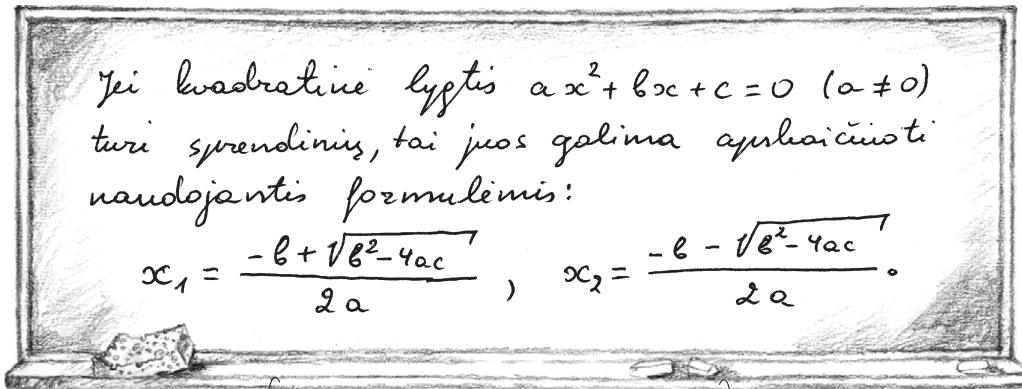 Jei kvadratinė lygtis ax² + bx + c = 0 (a ≠ 0)
turi sprendinių, tai juos galima apskaičiuoti
naudojantis formulėmis:
x₁ = (-b + √(b² - 4ac)) / 2a , x₂ = (-b - √(b² - 4ac)) / 2a .